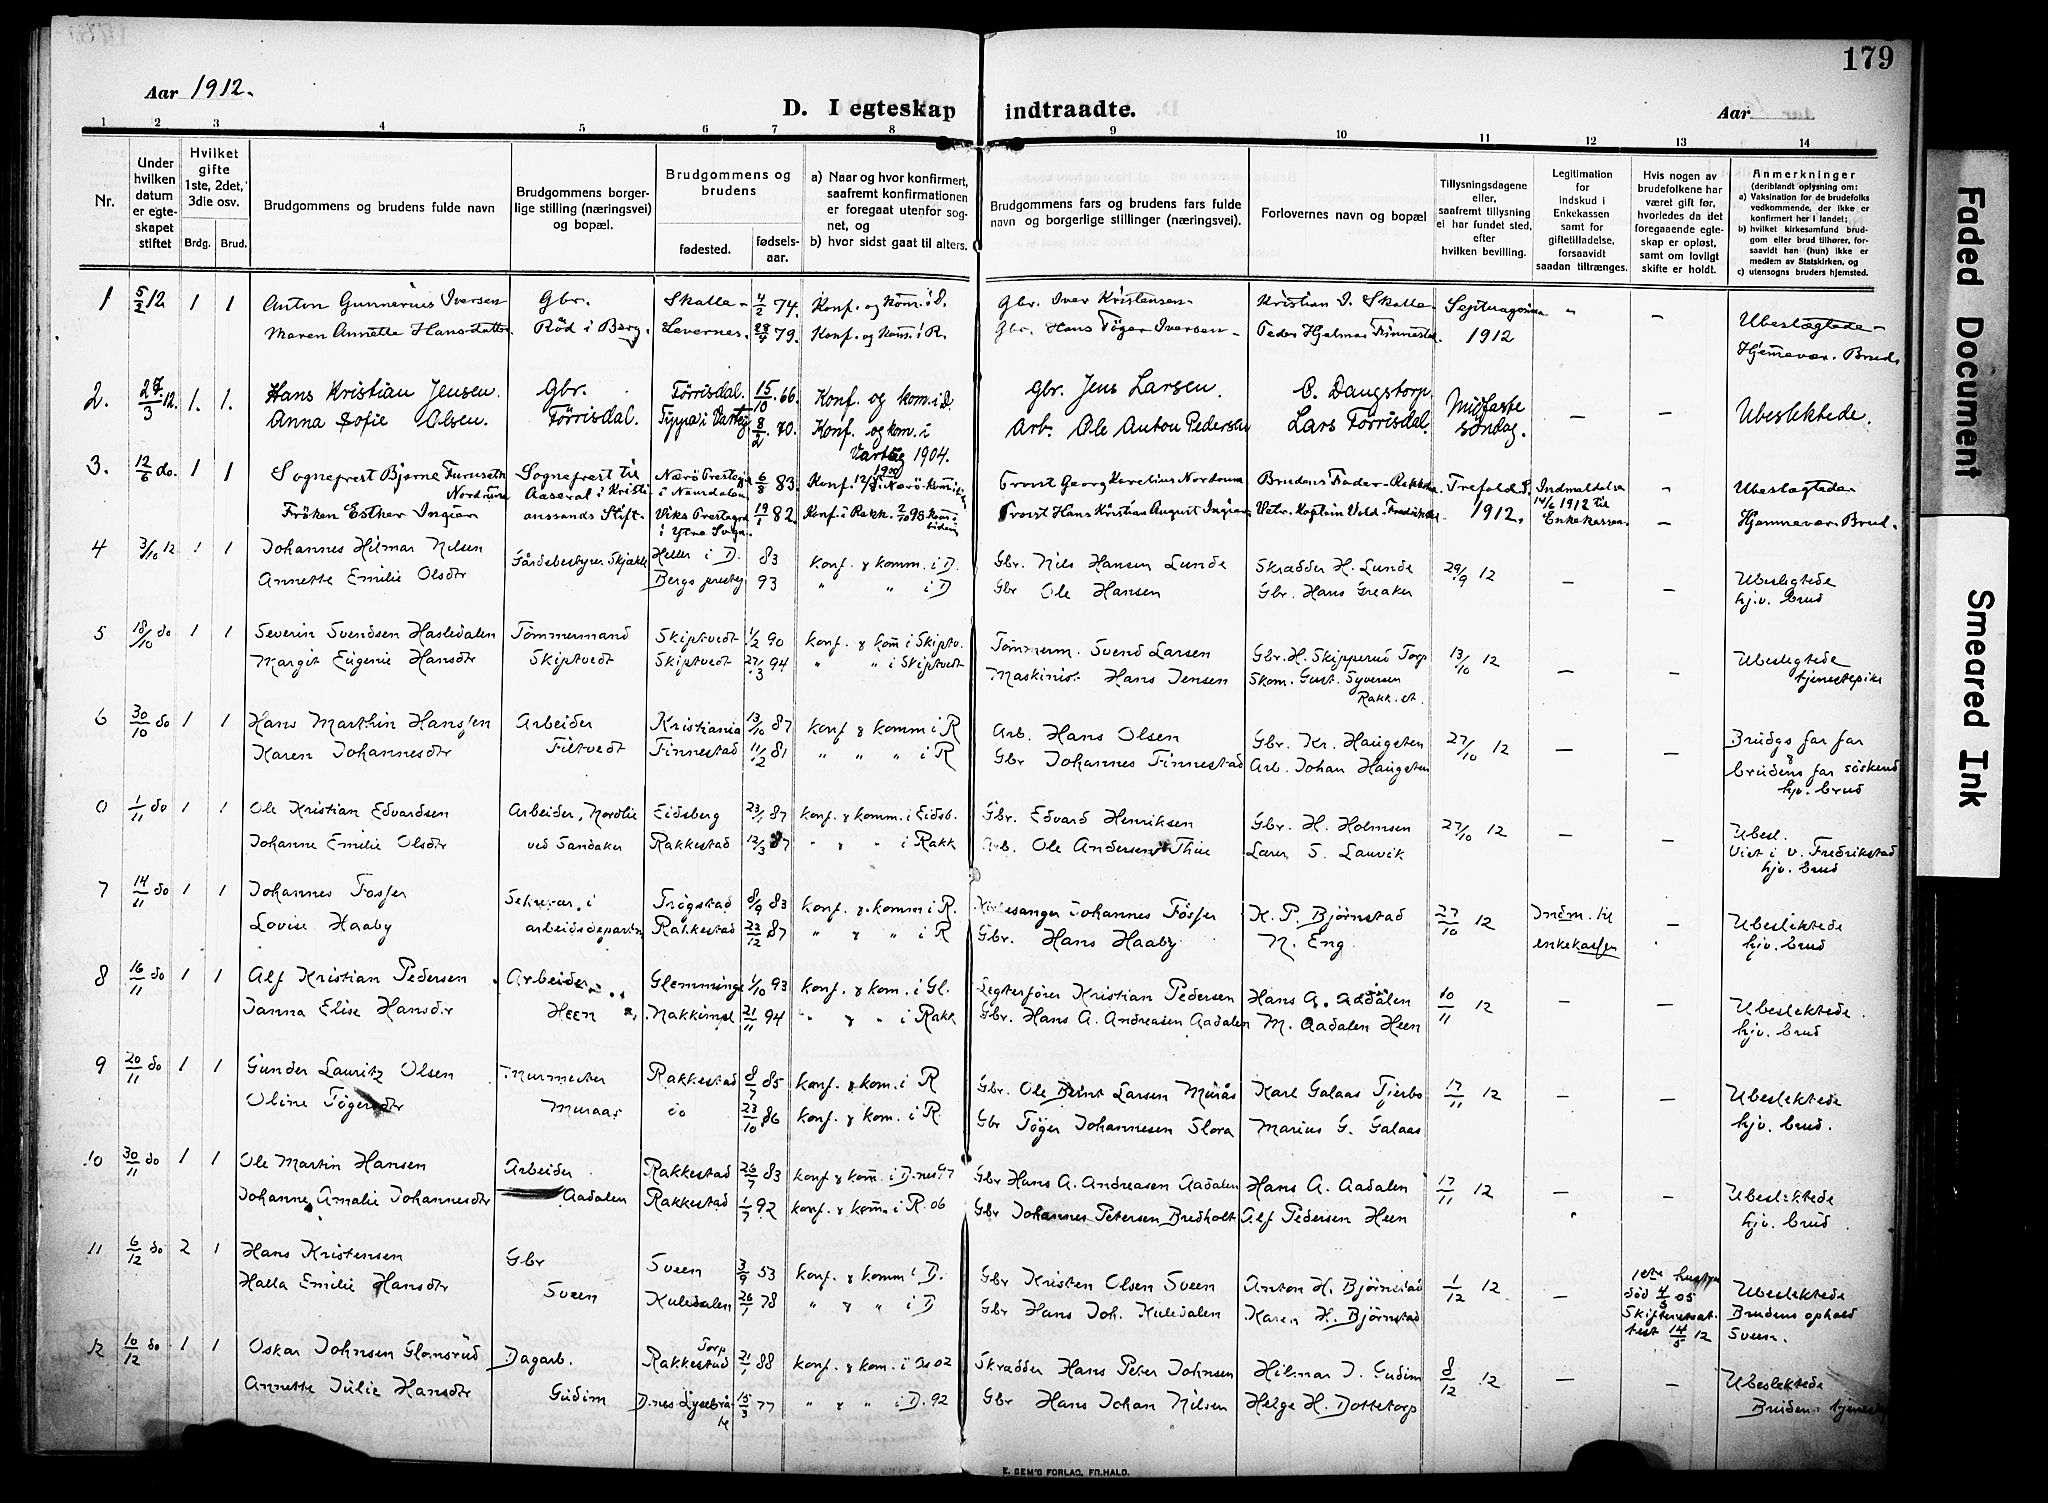 179
Aar 1912.
D. I egteskap indtraadte.
Aar
1 2 3 4 5 6 7 8 9 10 11 12 13 14
Nr.
Under hvilken datum er egteskapet stiftet
Hvilket gifte 1ste, 2det, 3die osv.
Brdg. Brud.
Brudgommens og brudens fulde navn
Brudgommens borgerlige stilling (næringsvei) og bopæl.
Brudgommens og brudens
fødested. fødselsaar.
a) Naar og hvor konfirmert, saafremt konfirmationen er foregaat utenfor sognet, og
b) hvor sidst gaat til alters.
Brudgommens fars og brudens fars fulde navn og borgerlige stillinger (næringsvei).
Forlovernes navn og bopæl
Tillysningsdagene eller, saafremt tillysning ei har fundet sted, efter hvilken bevilling.
Legitimation for indskud i Enkekassen samt for giftetilladelse, forsaavidt saadan tiltrænges.
Hvis nogen av brudefolkene har været gift før, hvorledes da det foregaaende egteskap er opløst, samt om lovligt skifte er holdt.
Anmerkninger (deriblandt oplysning om:
a) Vaksination for de brudefolks vedkommende, der ikke er konfirmert her i landet;
b) hvilket kirkesamfund brudgom eller brud tilhører, forsaavidt han (hun) ikke er medlem av Statskirken, og
c) utensogns bruders hjemsted.
1 5/2 12 1 1 Anton Gunnerius Iversen Gbr. Skatla 4/2 74. Konf. og kom. i D. Gbr. Iver Kristensen Kristian I. Skatla Septuagesima " — Ubeslægtede
Maren Annette Hansdatter Röd i Berg. Levernes. 79. Konf. og kom. i R. Gbr. Hans Töger Iversen Peder Hjalmar Finnestad. 1912 Hjemmevær. Brud.
2. 27/3 12. 1. 1. Hans Kristian Jensen. Gbr. Törrisdal. 15/10 66. Konf. og kom. i D. Gbr. Jens Larsen. O. Daugstorp. Midfaste — — Ubeslektede.
Anna Sofie Olsen. Törrisdal. i Varteig 8/2 70. Konf. og kom. i Varteig 1904. Arb. Ole Anton Pedersen Lars Törrisdal. söndag.
3. 12/6 do. 1 1 Sogneprest Bjarne Furuseth Nordrum Sogneprest til Aaseral i Kristi Nærö Prestegj. i Namdalen 6/8 83. Konf. Nærö Provst Georg Karelius Nordrum Brudens Fader Trefold. S. Indmeldelse 14/6 1912 til Enkekassen. — Ubeslægtede
Fröken Esther Ingier anssands Stift. Viks Prestegj. i Ytre Sogn. 19/1 82. Konf. i Rakk. 2/10 98 Provst Hans Kristian August Ingier 1912. Hjemmevær. Brud.
4 3/10 12 1 1 Johannes Hilmar Nilsen Gårdsbestyrer Skjækle Heller i D. 83 konf. & komm. i D. Gbr. Nils Hansen Lunde Skrædder H. Lunde 29/9 12 — — Ubeslegtede
Annette Emilie Olsdtr Bergs presteg 93 " " i D Gbr Ole Hansen Gbr. Hans Greaker hj.v. brud
5 18/10 do 1 1 Severin Svendsen Hasledalen Tömmermand Skiptvedt 1/2 90 konf. & kom i Skiptv. Tömmerm. Svend Larsen Gbr. H. Skipperud Torp 13/10 12 — — Ubeslegtede
Margit Eugenie Hansdtr Skiptvedt Skiptvedt 27/3 94 " " i Skiptvedt Maskinist. Hans Jensen Skom. Gust. Syversen Rakk.st. tjenestepike
6 30/10 do 1 1 Hans Marthin Hansen Arbeider Kristiania 13/10 87 konf & komm i R Arb. Hans Olsen Gbr. Kr. Haugsten 27/10 12 — — Brudgs far far
Karen Johannesdtr Filtvedt Finnestad 11/2 81 " " " i R Gbr Johannes Finnestad Arb. Johan Haugsten & brudens far söskend hjv. brud
0 1/11 do 1 1 Ole Kristian Edvardsen Arbeider, Nordlie Eidsberg 23/1 87 konf. & komm. i Eidsb. Gbr. Edvard Henriksen Gbr. H. Holmsen 27/10 12 — — Ubesl.
Johanne Emilie Olsdtr ved Sandaker Rakkestad 12/3 87 " " " i Rakk Arb. Ole Andersen Thue Lærer S. Lauvik Viet i v. Fredrikstad hjv. brud
7 14/11 do 1 1 Johannes Fosser Sekretær i Trøgstad 8/9 83 konf. & komm i R. Kirkesanger Johannes Fösser K. P. Björnstad 27/10 12 Indm. til — Ubeslektede
Lovise Haaby arbeidsdepartm Rakkestad 22/12 87 " & " i R Gbr. Hans Haaby N. Eng enkekassen hjv. brud
8 16/11 do 1 1 Alf Kristian Pedersen Arbeider Glemminge 1/10 93 konf. & kom. i Gl. Kristian Pedersen Hans A. Aadalen 10/11 12 — — Ubeslektede.
Janna Elise Hansdtr Heen Nakkimsl 21/11 94 " & " i Rakk Gbr. Hans A. Andreasen Aadalen M. Aadalen Heen hjv. brud
9 20/11 do 1 1 Gunder Lauritz Olsen Murmester Rakkestad 8/7 85 konf. & kom. i R Gbr. Ole Bernt Larsen Murås Karl Galaas Tjerbo 17/11 12 — — Ubeslektede
Oline Tögersdtr Muraas do 23/10 86 konf. & kom. i R. Gbr Töger Johannesen Slora Marius G. Galaas hjv. brud.
10 30/11 do 1 1 Ole Martin Hansen Arbeider Rakkestad 26/7 83 konf. & kom. i D.nes 97 Gbr Hans A. Andreasen Aadalen Hans A. Aadalen 17/11 12 — — Ubeslektede
Johanne Amalie Johannesdtr Aadalen Rakkestad 1/7 92 konf. & kom. i R. 06 Gbr Johannes Petersen Bredholt Alf Pedersen Heen hjv. brud.
11 6/12 do 2 1 Hans Kristensen Gbr Sveen 3/9 53 konf. & komm i D. Gbr Kristen Olsen Sveen Anton H. Björnstad 1/12 12 — 1ste hustru død 4/5 05 Skifteretsattest 14/5 12 Ubeslektede
Halla Emilie Hansdtr Sveen Kuledalen 26/1 78 " & " i D Gbr Hans Joh. Kuledalen Karen H. Björnstad Brudens ophold Sveen.
12 10/12 do 1 1 Oskar Johnsen Glansrud Dagarb. Torp Rakkestad 21/1 88 konf. & kom. i Os 02 Skrædder Hans Peter Johnsen Hilmar J. Gudim 8/12 12 — — Ubeslektede
Annette Julie Hansdtr Gudim D.nes Lysebrå 15/3 77 " & " i D. 92 Gbr Hans Johan Nilsen Helge H. Dottetorp Brudens
E. SEM'S FORLAG, FR.HALD.
Faded Document
Smeared Ink